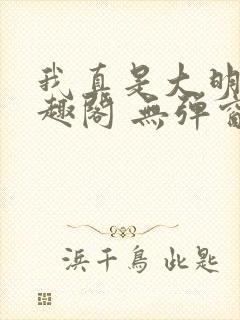 我真是大明
趣阁 無弹窗
浜千鳥 此匙